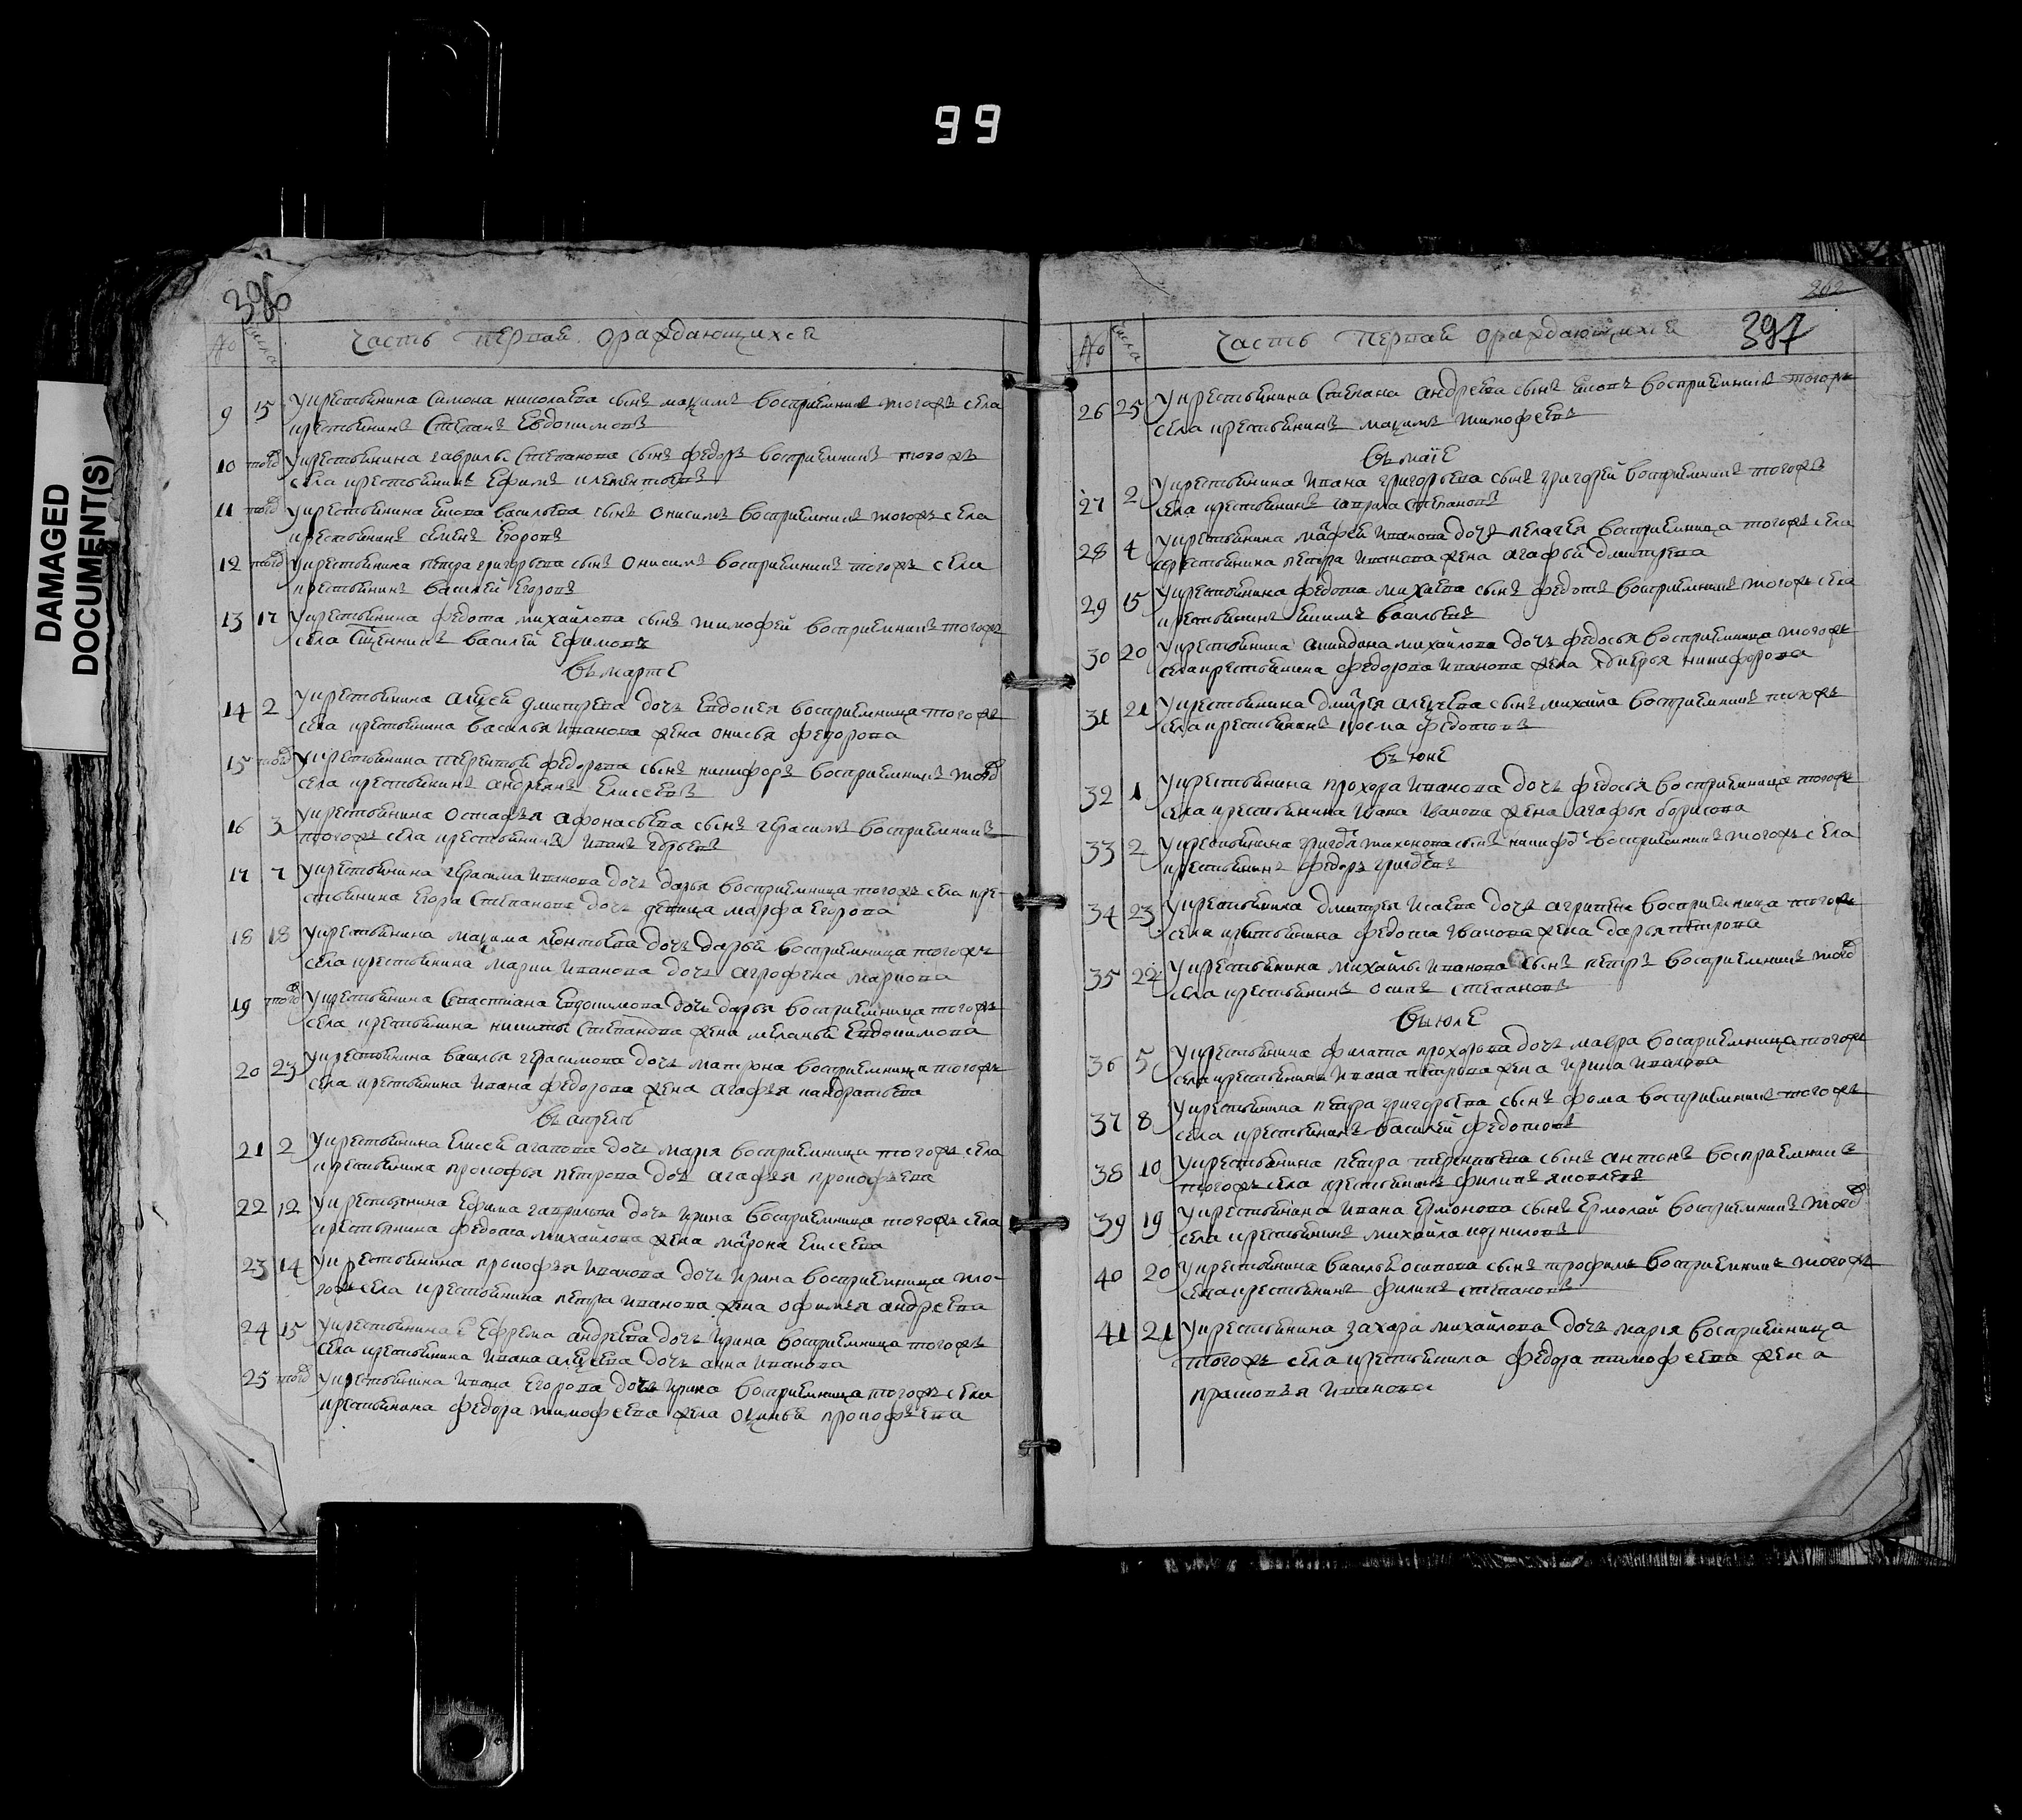 99
DAMAGED
DOCUMENT(S)
396
№ числа Часть первая ораждающихся
9 15 У крестьянина Симона николаева сынъ маѯимъ восприемникъ тогожъ села
крестьянинъ Степанъ Евдокимовъ
10 тогож У крестьянина гаврилы Степанова сынъ федоръ восприемникъ тогожъ
села крестьянинъ Ефимъ клементьевъ
11 тогож У крестьянина васильева сынъ Онисимъ восприемникъ тогожъ села
крестьянинъ семенъ Егоровъ
12 тогож У крестьянина петра григорьева сынъ Онисимъ восприемникъ тогожъ села
крестьянинъ василей Егоровъ
13 17 У крестьянина федота михайлова сынъ тимофей восприемникъ тогожъ
села Сщенникъ василей Ефимовъ
въ марте
14 2 У крестьянина алеѯея дмитрева дочь Евдокея восприемница тогожъ
села крестьянина василья иванова жена онисья федорова
15 тогож У крестьянина терентья федорова сынъ никифоръ восприемникъ тогож
села крестьянинъ андреянъ Елисеевъ
16 3 У крестьянина Остафья афонасьева сынъ герасимъ восприемникъ
тогожъ села крестьянинъ иванъ
17 7 У крестьянина герасима иванова дочь дарья восприемница тогожъ села кре-
стьянина Егора Степанова дочь девица марфа Егорова
18 18 У крестьянина маѯима леонтьева дочь дарья восприемница тогожъ
села крестьянина марки иванова дочь агрофена маркова
19 тогож У крестьянина Севастиана Евдокимова дочь дарья восприемница тогожъ
села крестьянина никиты Степанова жена меланья Евдокимова
20 23 У крестьянина василья герасимова дочь матрона восприемница тогожъ
села крестьянина ивана федорова жена агафья кандратьева
въ апреле
21 2 У крестьянина Елисея агапова дочь марiя восприемница тогожъ села
крестьянина прокофья петрова дочь агафья прокофьева
22 12 У крестьянина Ефима гаврилова дочь ирина восприемница тогожъ села
крестьянина федота михайлова жена матрона Елисеева
23 14 У крестьянина прокофья иванова дочь ирина восприемница то-
гожъ села крестьянина петра иванова жена офимья андреева
24 15 У крестьянина Ефрема андреева дочь ирина восприемница тогожъ
села крестьянина ивана алеѯеева дочь анна иванова
25 тогож У крестьянина ивана Егорова дочь ирина восприемница тогожъ села
крестьянина федора тимофеева жена прокофьева
202
397
№ числа Часть первая ораждающихся
26 25 У крестьянина Степана андреева сынъ восприемникъ тогожъ
села крестьянинъ маѯимъ тимофеевъ
въ маiе
27 2 У крестьянина ивана григорьева сынъ григорей восприемникъ тогожъ
села крестьянинъ гаврила Степановъ
28 4 У крестьянина матфея иванова дочь пелагея восприемница тогожъ села
крестьянина петра иванова жена агафья дмитрева
29 15 У крестьянина федота михаева сынъ федотъ восприемникъ тогожъ села
крестьянинъ васильевъ
30 20 У крестьянина михайлова дочь федосья восприемница тогожъ
села крестьянина федорова иванова жена никифорова
31 21 У крестьянина дмитрея алеѯеева сынъ михайла восприемникъ тогожъ
села крестьянинъ косма федотовъ
въ юне
32 1 У крестьянина прохора иванова дочь федосья восприемница тогожъ
села крестьянина ивана иванова жена агафья борисова
33 2 У крестьянина сынъ восприемникъ тогожъ села
крестьянинъ федоръ
34 23 У крестьянина дмитрея исаева дочь агрипена восприемница тогожъ
села крестьянина федота иванова жена дарья петрова
35 22 У крестьянина михайлы иванова сынъ петръ восприемникъ тогож
села крестьянинъ осипъ степановъ
въ июле
36 5 У крестьянина филата прохорова дочь мавра восприемница тогожъ
села крестьянина ивана петрова жена ирина иванова
37 8 У крестьянина петра григорьева сынъ фома восприемникъ тогожъ
села крестьянинъ василей федотовъ
38 10 У крестьянина петра терентьева сынъ антонъ восприемникъ
тогожъ села крестьянинъ филипъ яковлевъ
39 19 У крестьянина ивана Ермолова сынъ Ермолай восприемникъ тогож
села крестьянинъ михайла корниловъ
40 20 У крестьянина василья осипова сынъ трофимъ восприемникъ тогожъ
села крестьянинъ филипъ степановъ
41 21 У крестьянина захара михайлова дочь марiя восприемница
тогожъ села крестьянина федора тимофеева жена
прасковья иванова